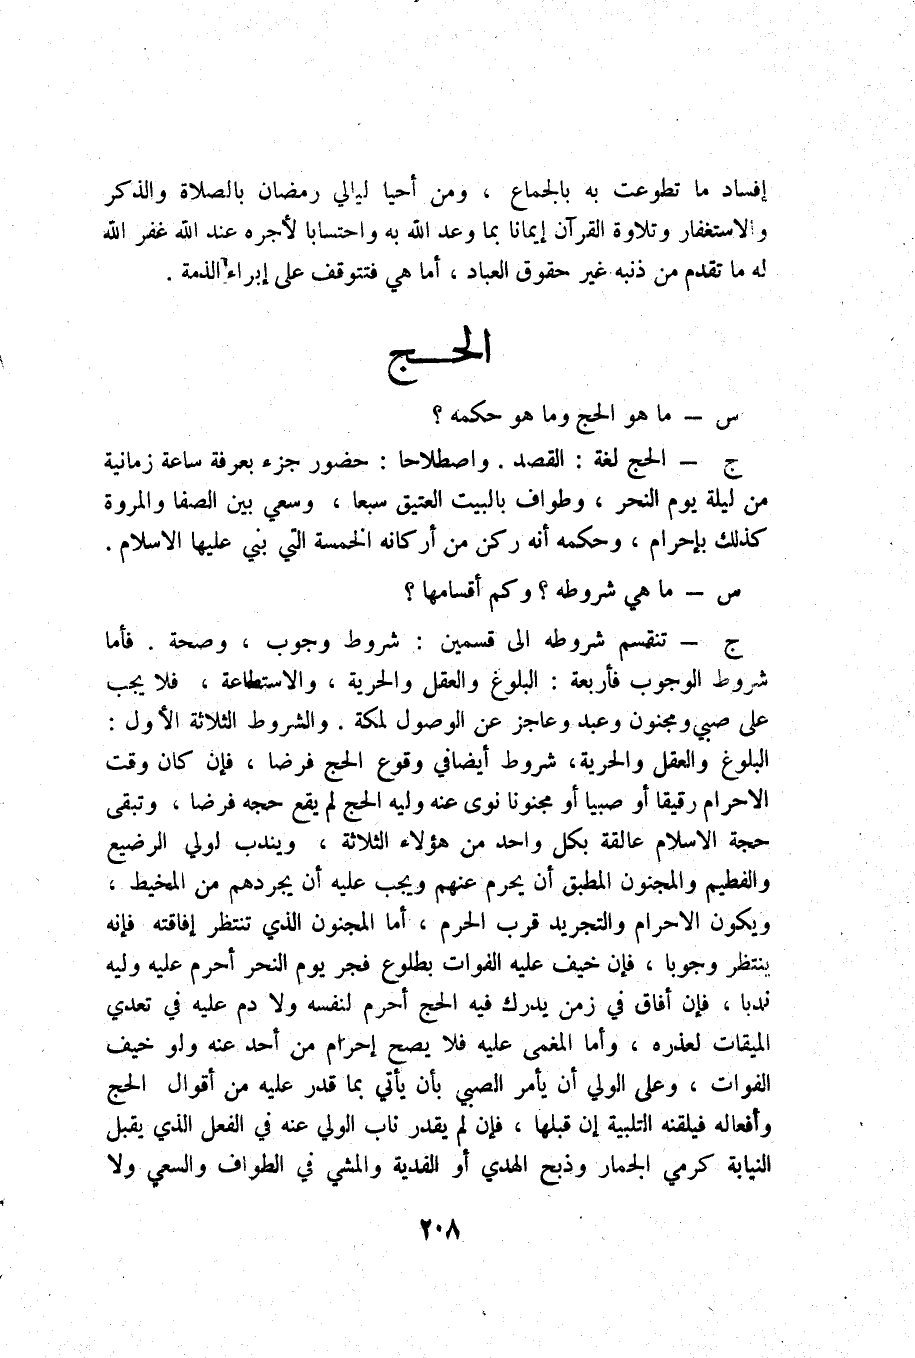 إفساد ما تطوعت به بالجماع ، ومن أحيا ليالي رمضان بالصلاة والذكر
والاستغفار وتلاوة القرآن إيمانا بما وعد الله به واحتسابا لأجره عند الله غفر الله
له ما تقدم من ذنبه غير حقوق العباد ، أما هي فتتوقف على إبراء الذمة .
الحــج
س – ما هو الحج وما هو حكمه ؟
ج – الحج لغة : القصد . واصطلاحا : حضور جزء بعرفة ساعة زمانية
من ليلة يوم النحر ، وطواف بالبيت العتيق سبعا ، وسعي بين الصفا والمروة
كذلك بإحرام ، وحكمه أنه ركن من أركانه الخمسة التي بني عليها الاسلام .
س – ما هي شروطه ؟ وكم أقسامها ؟
ج – تنقسم شروطه الى قسمين : شروط وجوب ، وصحة . فأما
شروط الوجوب فأربعة : البلوغ والعقل والحرية ، والاستطاعة ، فلا يجب
على صبي ومجنون وعبد وعاجز عن الوصول لمكة . والشروط الثلاثة الأول :
البلوغ والعقل والحرية، شروط أيضافي وقوع الحج فرضا ، فإن كان وقت
الاحرام رقيقا أو صبيا أو مجنونا نوى عنه وليه الحج لم يقع حجه فرضا ، وتبقى
حجة الاسلام عالقة بكل واحد من هؤلاء الثلاثة ، ويندب لولي الرضيع
والفطيم والمجنون المطبق أن يحرم عنهم ويجب عليه أن يجردهم من المخيط ،
ويكون الاحرام والتجريد قرب الحرم ، أما المجنون الذي تنتظر إفاقته فإنه
ينتظر وجوبا ، فإن خيف عليه الفوات بطلوع فجر يوم النحر أحرم عليه وليه
ندبا ، فإن أفاق في زمن يدرك فيه الحج أحرم لنفسه ولا دم عليه في تعدي
الميقات لعذره ، وأما المغمى عليه فلا يصح إحرام من أحد عنه ولو خيف
الفوات ، وعلى الولي أن يأمر الصبي بأن يأتي بما قدر عليه من أقوال الحج
وأفعاله فيلقنه التلبية إن قبلها ، فإن لم يقدر ناب الولي عنه في الفعل الذي يقبل
النيابة كرمي الجمار وذبح الهدي أو الفدية والمشي في الطواف والسعي ولا
٢٠٨